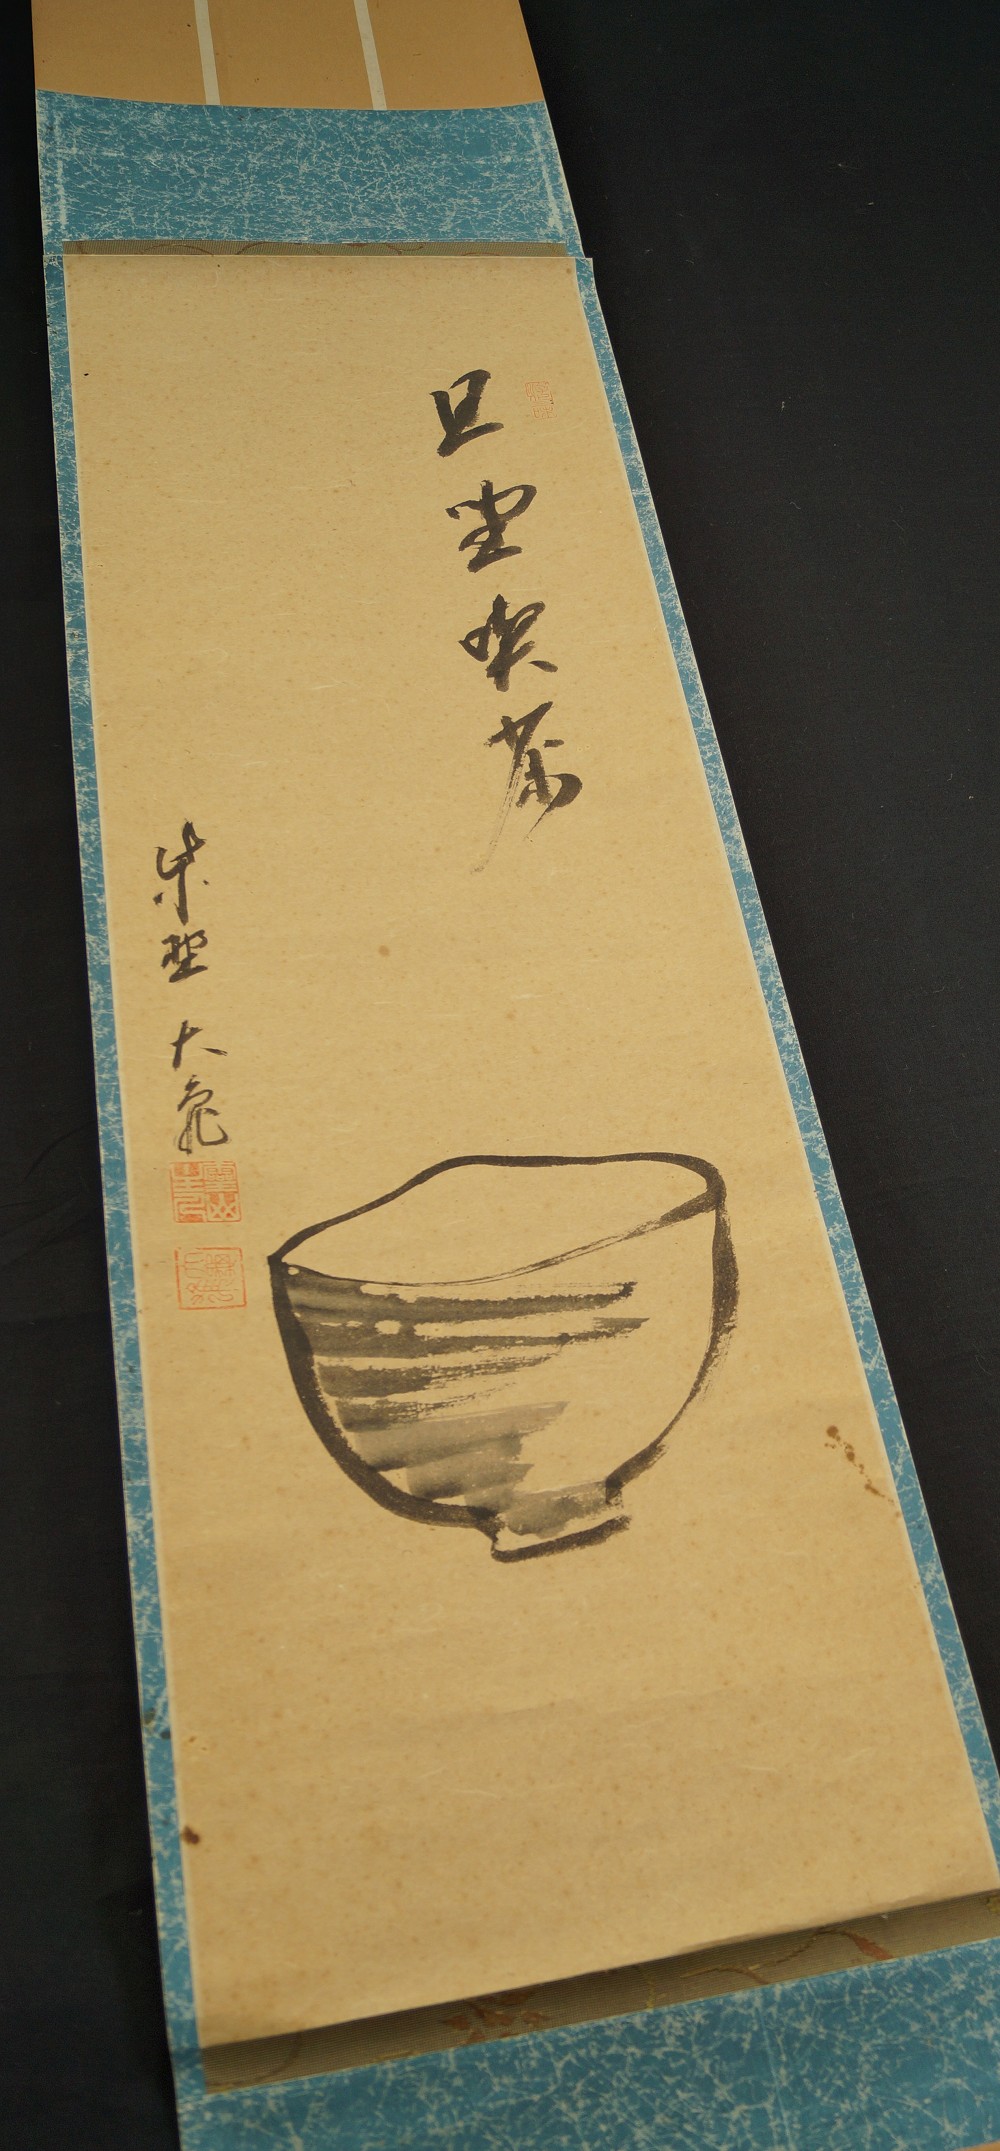 且坐喫茶
紫野 大亀